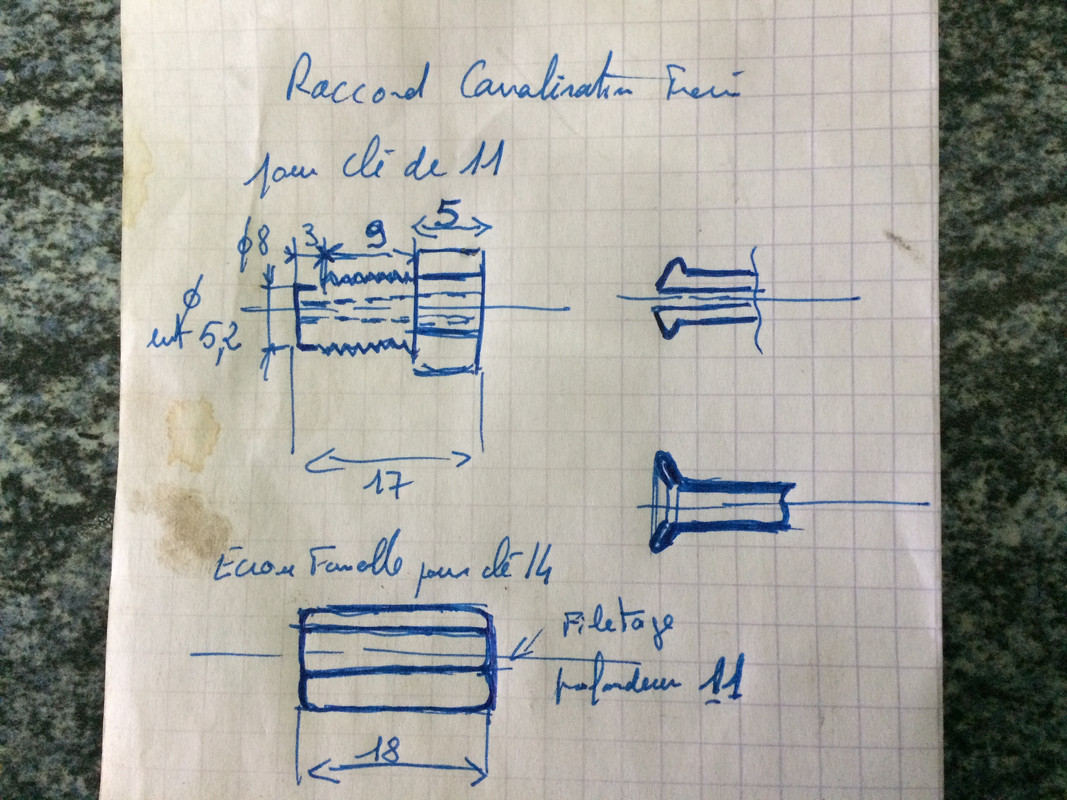 Raccord Canalisation Frein
pour clé de 11
5
ϕ8 3 9
ϕ
ent 5,2
17
Ecrou Femelle pour clé 14
Filetage
profondeur 11
18